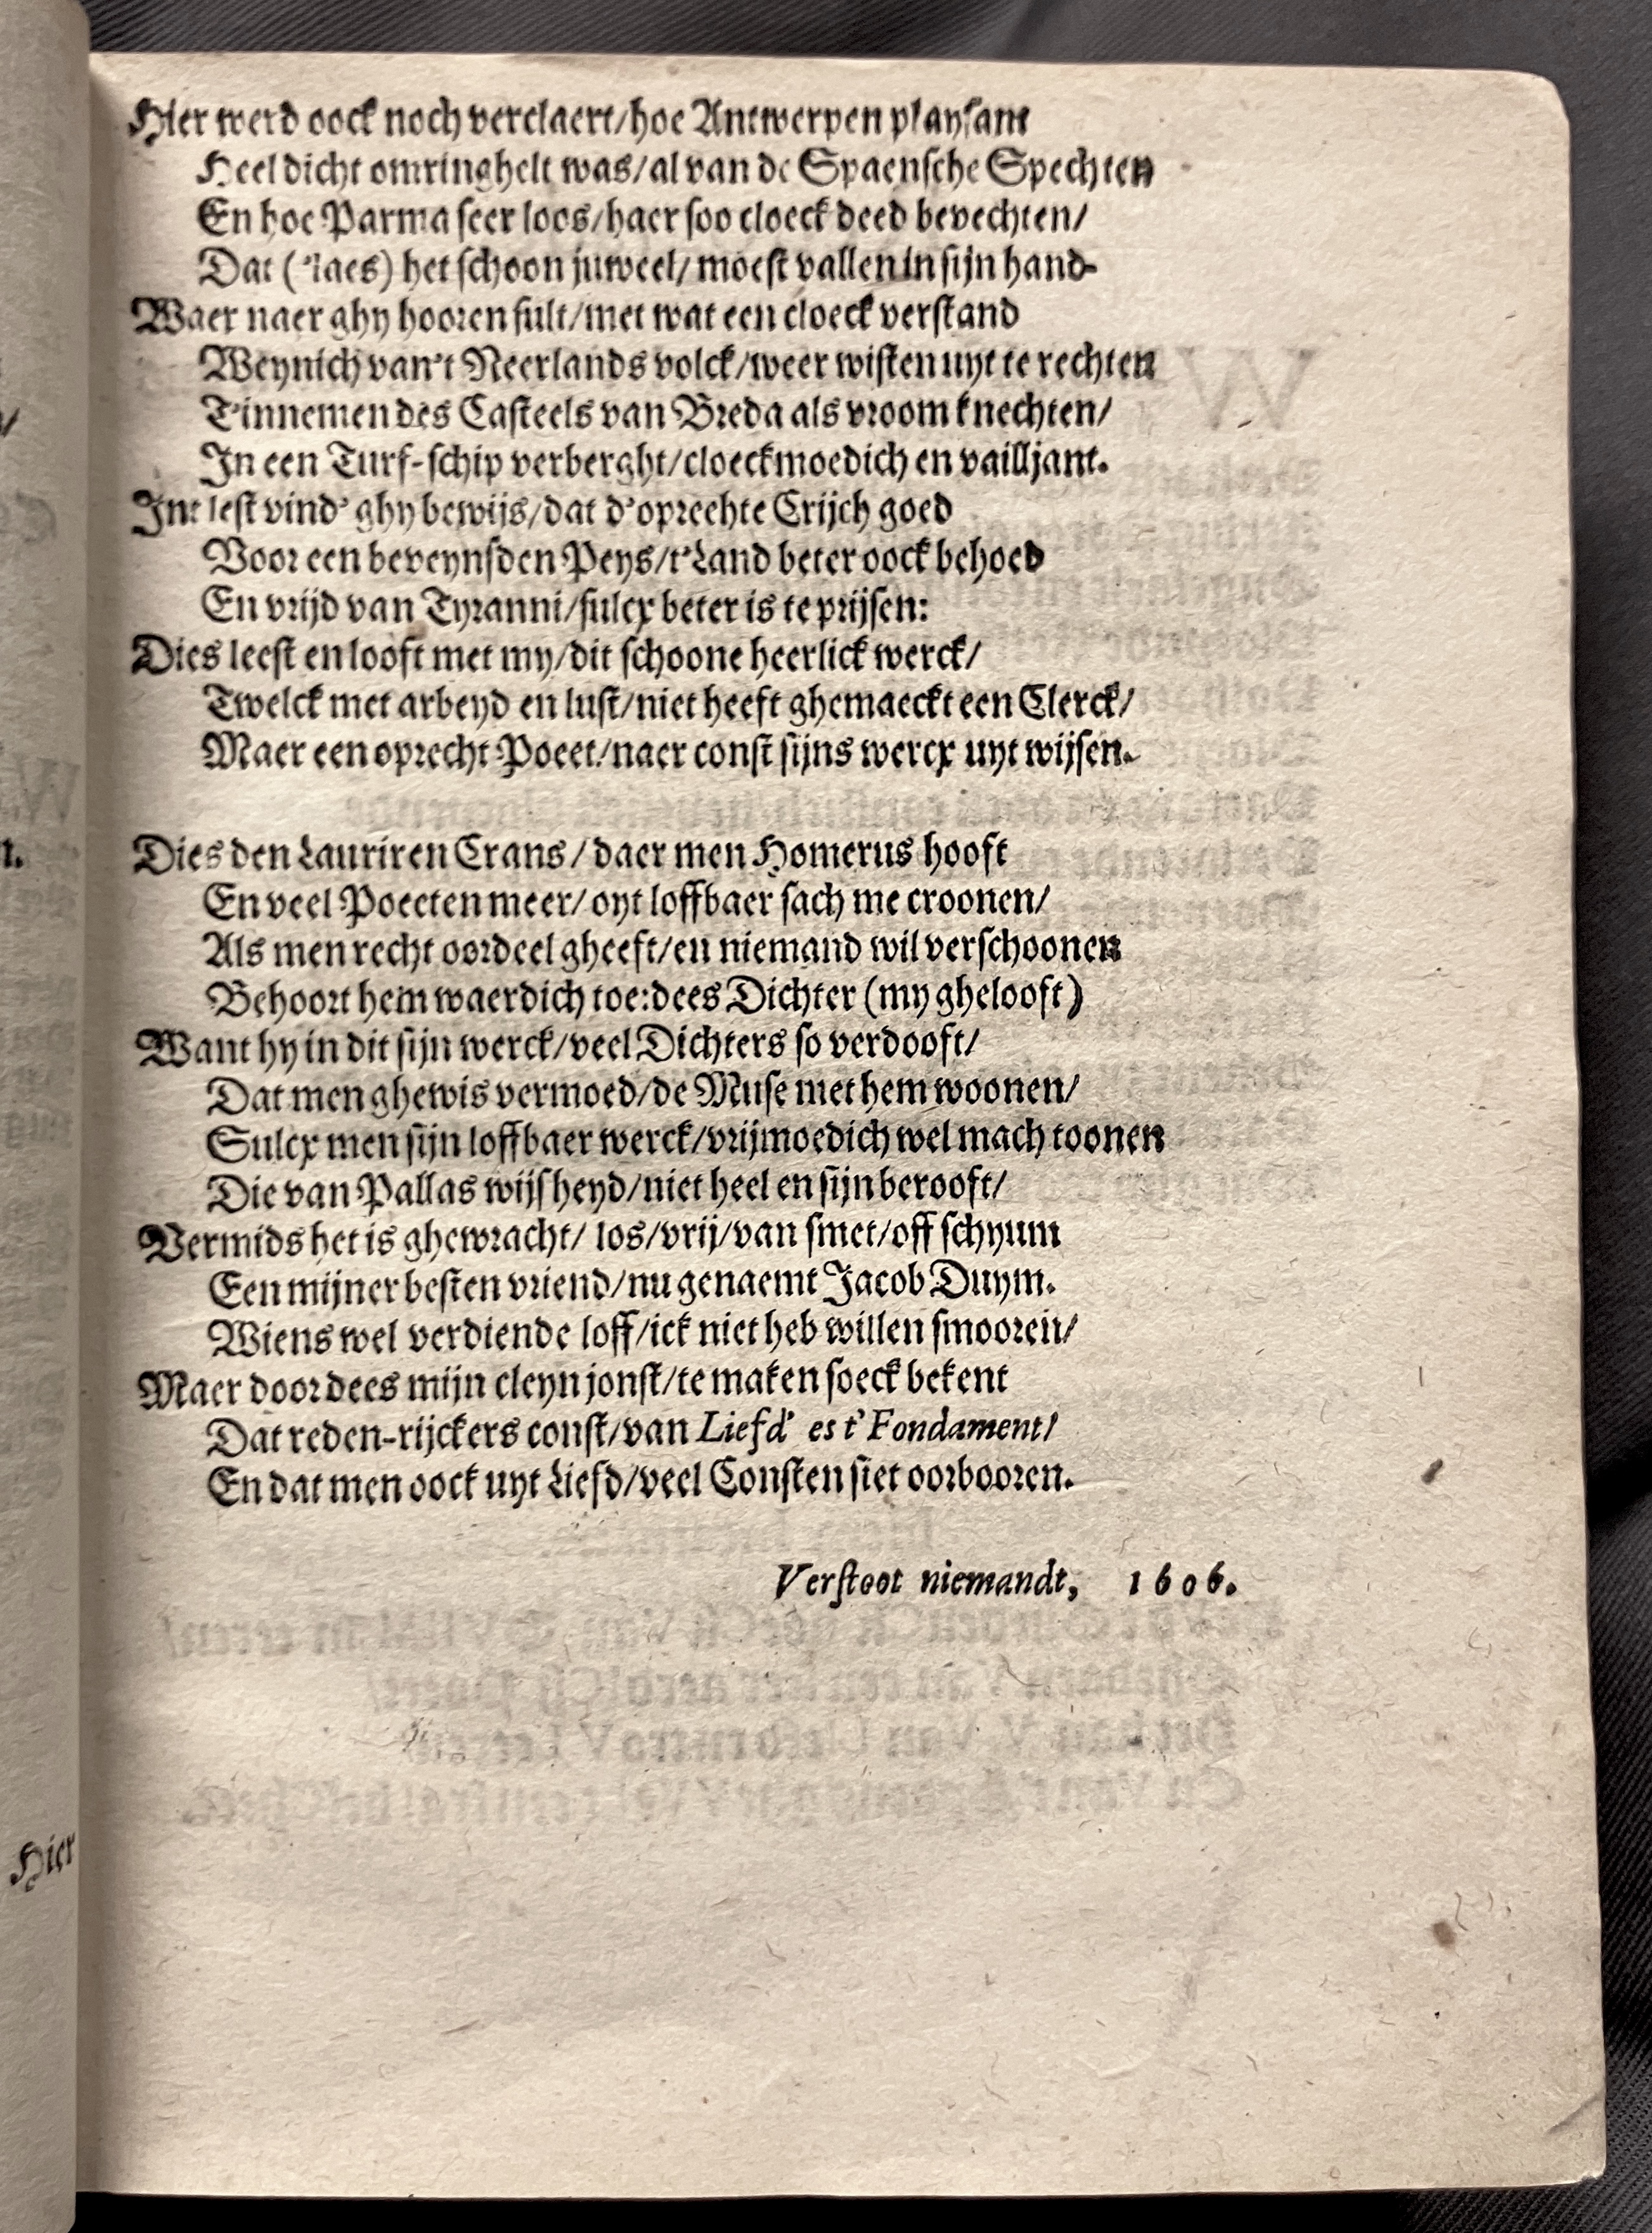 Hier werd oock noch verclaert/hoe Antwerpen playsant
Heel dicht omringhelt was/al van de Spaensche Spechten
En hoe Parma seer loos/haer soo cloeck deed bevechten/
Dat ('laes) het schoon juweel/moest vallen in sijn hand-
Waer naer ghy hooren sult/met wat een cloeck verstand
Weynich van't Neerlands volck/weer wisten uyt te rechten
T'innemen des Casteels van Breda als vroom knechten/
In een Turf-schip verberght/cloeckmoedich en vailljant.
Int lest vind' ghy bewijs/dat d'oprechte Crijch goed
Voor een beveynsden Peys/t'Land beter oock behoed
En vrijd van Tyranni/sulcx beter is te prijsen:
Dies leest en looft met my/dit schoone heerlick werck/
Twelck met arbeyd en lust/niet heeft ghemaeckt een Clerck/
Maer een oprecht Poeet/naer const sijns wercx uyt wijsen.
Dies den Lauriren Crans/daer men Homerus hooft
En veel Poeeten meer/oyt loffbaer sach me croonen/
Als men recht oordeel gheeft/en niemand wil verschoonen
Behoort hem waerdich toe:dees Dichter (my ghelooft)
Want hy in dit sijn werck/veel Dichters so verdooft/
Dat men ghewis vermoed/de Muse met hem woonen/
Sulcx men sijn loffbaer werck/vrijmoedich wel mach toonen
Die van Pallas wijsheyd/niet heel en sijn berooft/
Vermids het is ghewracht/los/vrij/van smet/off schyum
Een mijner besten vriend/nu genaemt Jacob Duym.
Wiens wel verdiende loff/ick niet heb willen smooren/
Maer door dees mijn cleyn jonst/te maken soeck bekent
Dat reden-rijckers const/van Liefd' es t'Fondament/
En dat men oock uyt Liefd/veel Consten siet oorbooren.
Verstoot niemandt, 1606.
Hier